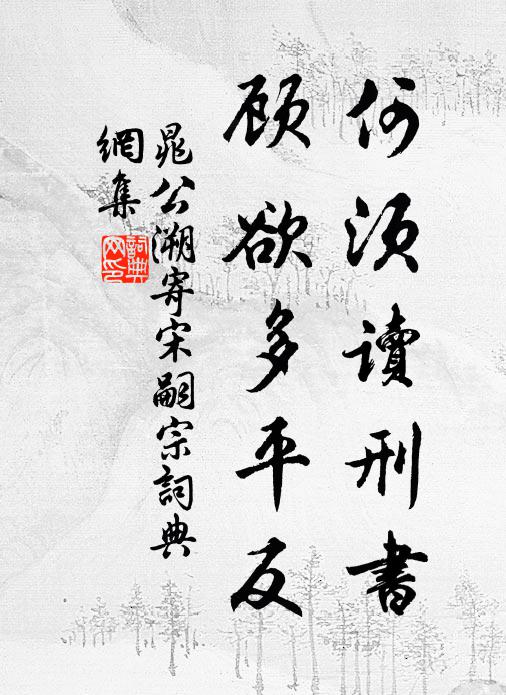 何须讀刑書
顾欲多平反
晁公溯寄宋嗣宗詞典
網集
詞典网印